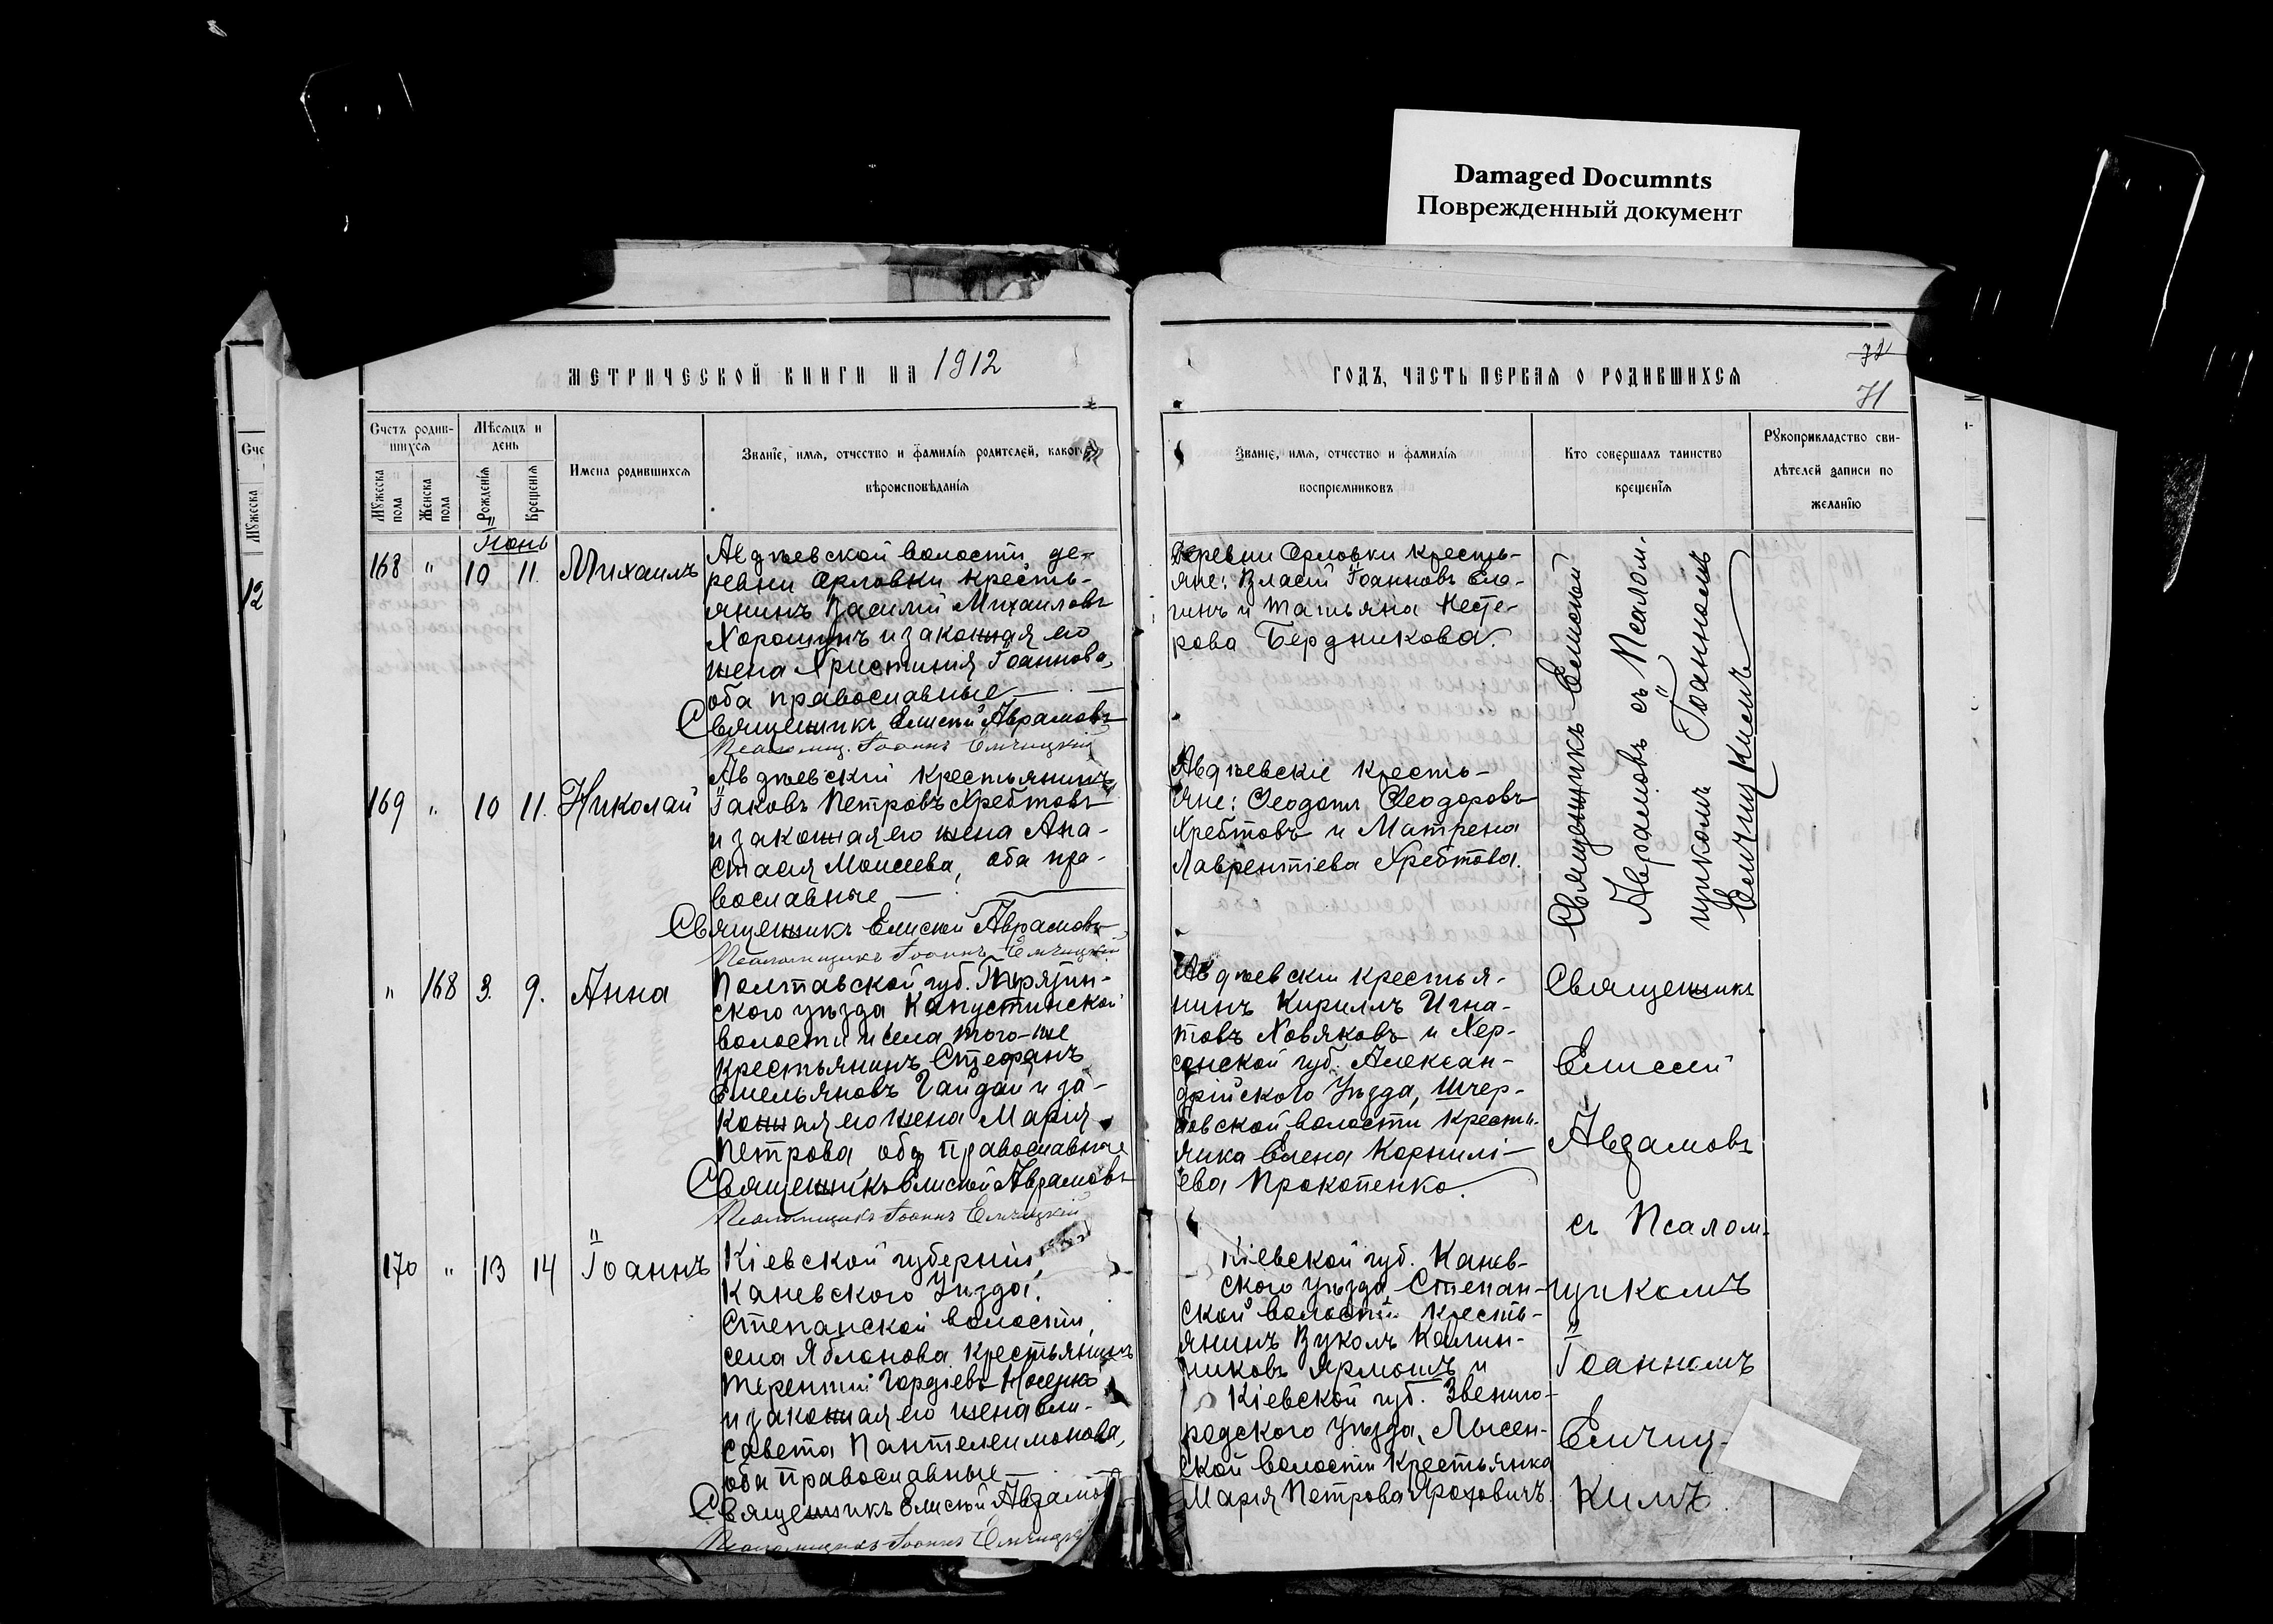 Damaged Documnts
Поврежденный документ
МЕТРИЧЕСКОЙ КНИГИ НА 1912
ГОДЪ, ЧАСТЬ ПЕРВАЯ О РОДИВШИХСЯ
72
71
Счетъ родив-
шихся
Мѣсяцъ и
день
Мужеска пола
Женска пола
Рожденія
Крещенія
Имена родившихся
Званіе, имя, отчество и фамилія родителей, какого
вѣроисповѣданія
Званіе, имя, отчество и фамилія
воспріемниковъ
Кто совершалъ таинство
крещенія
Рукоприкладство сви-
дѣтелей записи по
желанію
Сче
Мужеска
12
Іюнь
168 " 10 11. Михаилъ
Авдѣевской волости, де-
ревни Орловки кресть-
янинъ Василій Михаиловъ
Хорошунъ и законная его
жена Христинія Іоаннова,
оба православные
Священникъ Елисей Аврамовъ
Псаломщ. Іоаннъ Емчицкій
Деревни Орловки кресть-
яне: Власій Іоанновъ Ело-
гинъ и Татьяна Несте-
рова Бердникова.
Священникъ Елисей
Аврамовъ съ Псалом-
щикомъ Іоанномъ
Емчицкимъ
169 " 10 11. Николай
Авдѣевскій крестьянинъ
Іаковъ Петровъ Хребтовъ
и законная его жена Ана-
стасія Моисеева, оба пра-
вославные
Священникъ Елисей Аврамовъ
Псаломщикъ Іоаннъ Емчицкій
Авдѣевскіе кресть-
яне: Ѳеодотъ Ѳеодоровъ
Хребтовъ и Матрена
Лаврентіева Хребтова.
" 168 3. 9. Анна
Полтавской губ. Пирятин-
ского уѣзда Капустинской
волости и села того-же
крестьянинъ Стефанъ
Емельяновъ Гайдай и за-
конная его жена Марія
Петрова оба православные
Священникъ Елисей Аврамовъ
Псаломщикъ Іоаннъ Емчицкій
Авдѣевскій крестья-
нинъ Кириллъ Игна-
товъ Ховяковъ и Хер-
сонской губ. Алексан-
дрійского Уѣзда,
волости кресть-
янка Елена Корнилі-
ева Прокопенко.
Священникъ
Елисей
Аврамовъ
съ Псалом-
щикомъ
Іоанномъ
Емчиц-
кимъ.
170 " 13 14 Іоаннъ
Кіевской губерніи,
Каневского Уѣзда,
Степанской волости,
села Яблонова крестьянинъ
Терентій Гордіевъ Носенко
и законная его жена Ели-
савета Пантелеимонова,
оба православные
Священникъ Елисей Аврамовъ
Псаломщикъ Іоаннъ Емчицкій
Кіевской губ. Канев-
ского уѣзда, Степан-
ской волости кресть-
янинъ Вуколъ Калин-
никовъ Ярмошъ и
Кіевской губ. Звениго-
родского уѣзда, Лысен-
ской волости крестьянка
Марія Петрова Яроховичъ.